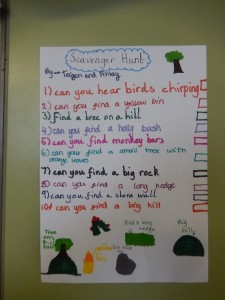 Scavenger Hunt
By → Teigen and Finlay
1) can you hear birds chirping
2) can you find a yellow bin
3) Find a tree on a hill
4) can you find a holly bush
5) can you find monkey bars
6) can you find a small tree with
orange leaves
7) can you find a big rock
8) can you find a long hedge
9) can you find a stone wall
10) can you find a big hill
Tree on a hill
yellow
Big
hill